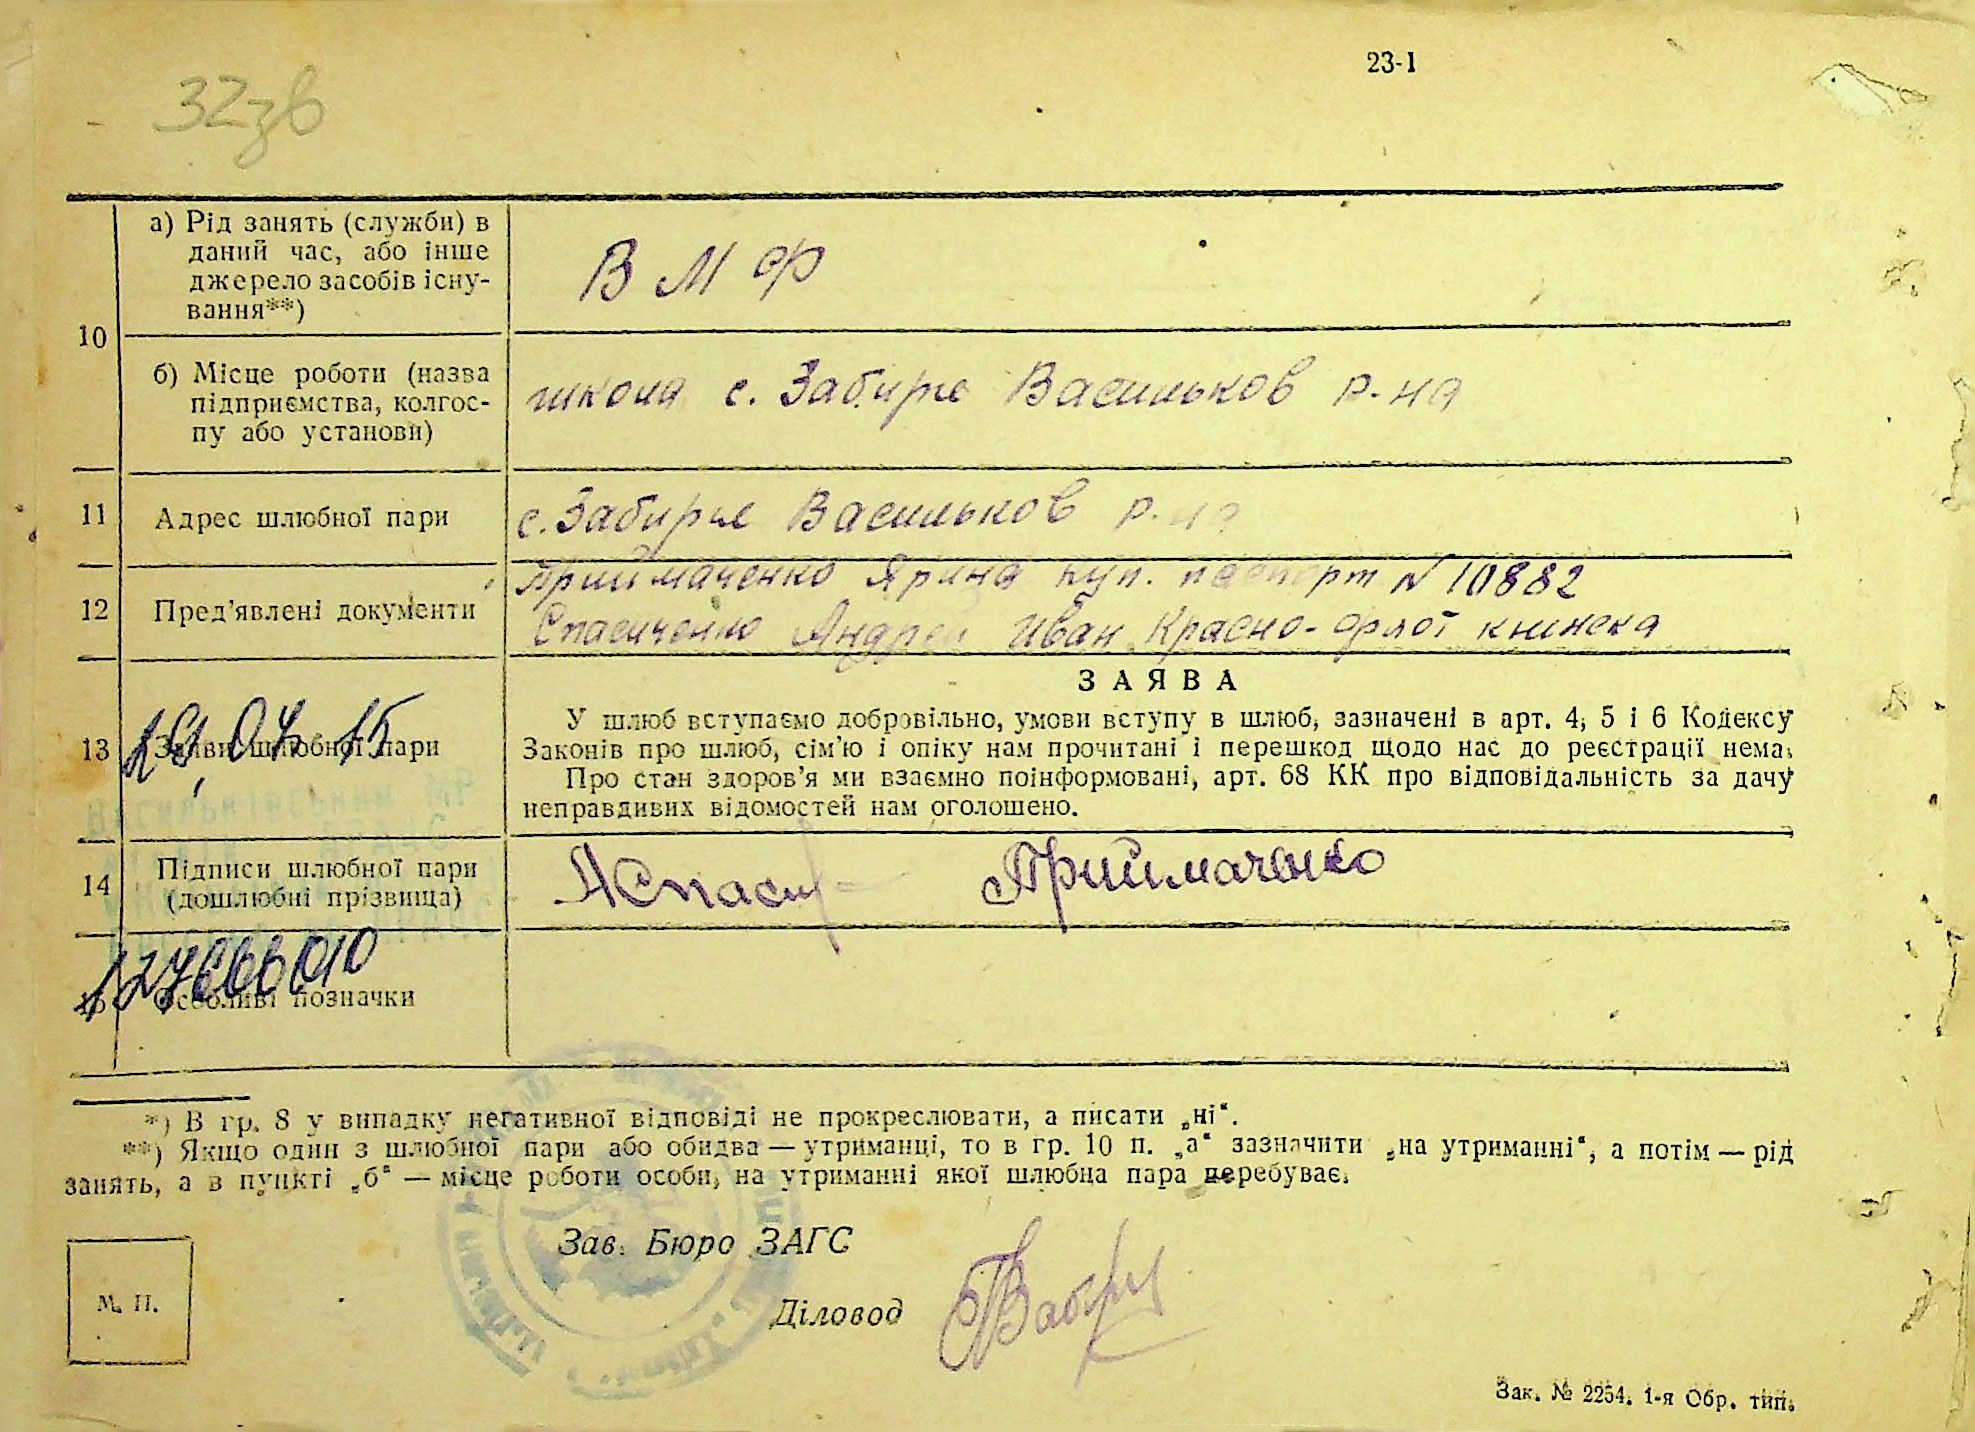 23-1
32зв
10
а) Рід занять (служби) в
даний час, або інше
джерело засобів існу-
вання**)
В М Ф
б) Місце роботи (назва
підприємства, колгос-
пу або установи)
школа с. Забирье Васильков р-на
11
Адрес шлюбної пари
с. Забирье Васильков р-на
12
Пред’явлені документи
Приймаченко Ярина паспорт N 10882
Спасиченко Андрей Иван. Красно-флот книжка
13
Заяви шлюбної пари
19.04.15
З А Я В А
У шлюб вступаємо добровільно, умови вступу в шлюб, зазначені в арт. 4, 5 і 6 Кодексу
Законів про шлюб, сім’ю і опіку нам прочитані і перешкод щодо нас до реєстрації нема.
Про стан здоров’я ми взаємно поінформовані, арт. 68 КК про відповідальність за дачу
неправдивих відомостей нам оголошено.
14
Підписи шлюбної пари
(дошлюбні прізвища)
Приймаченко
15
Особливі позначки
*) В гр. 8 у випадку негативної відповіді не прокреслювати, а писати „ні“.
**) Якщо один з шлюбної пари або обидва — утриманці, то в гр. 10 п. „а“ зазначити „на утриманні“, а потім — рід
занять, а в пункті „б“ — місце роботи особи, на утриманні якої шлюбна пара перебуває.
Зав. Бюро ЗАГС
М. П.
Діловод
Зак. № 2254. 1-я Обр. тип.